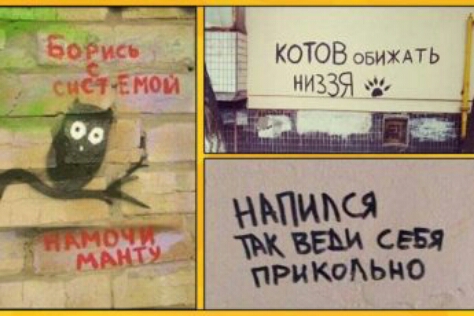 Борись
с
систЕмой
НАМОЧИ
МАНТУ
КОТОВ ОБИЖАТЬ
НИЗЗЯ
НАПИЛСЯ
ТАК ВЕДИ СЕБЯ
ПРИКОЛЬНО